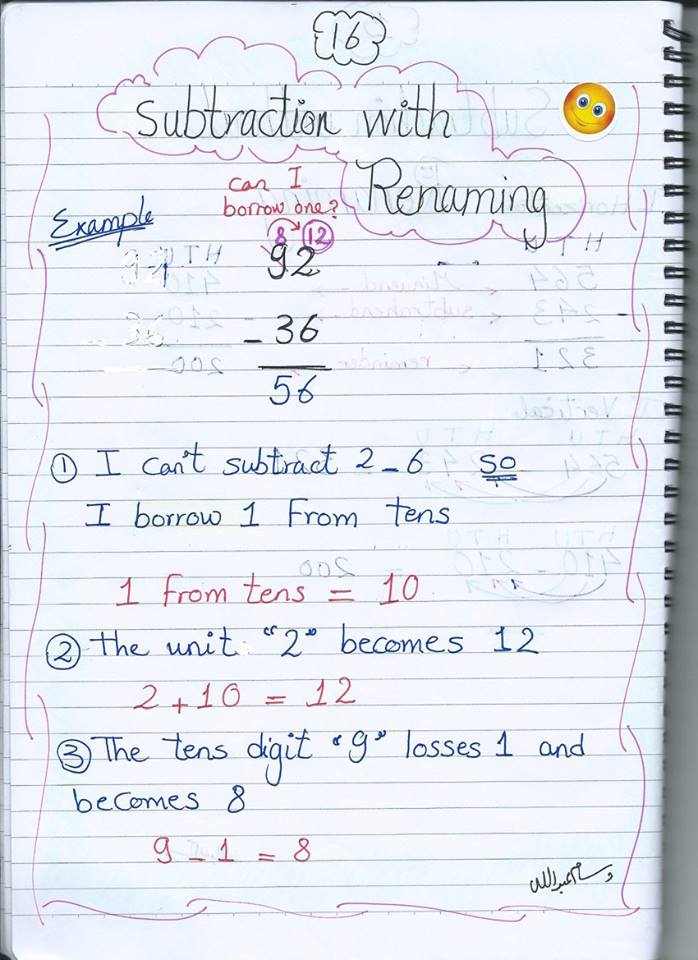 16
Subtraction with
Renaming
can I
borrow one?
Example
8 12
92
- 36
56
① I can't subtract 2 - 6 so
I borrow 1 From tens
1 from tens = 10
② The unit "2" becomes 12
2 + 10 = 12
③ The tens digit "9" losses 1 and
becomes 8
9 - 1 = 8
وسام عبدالله